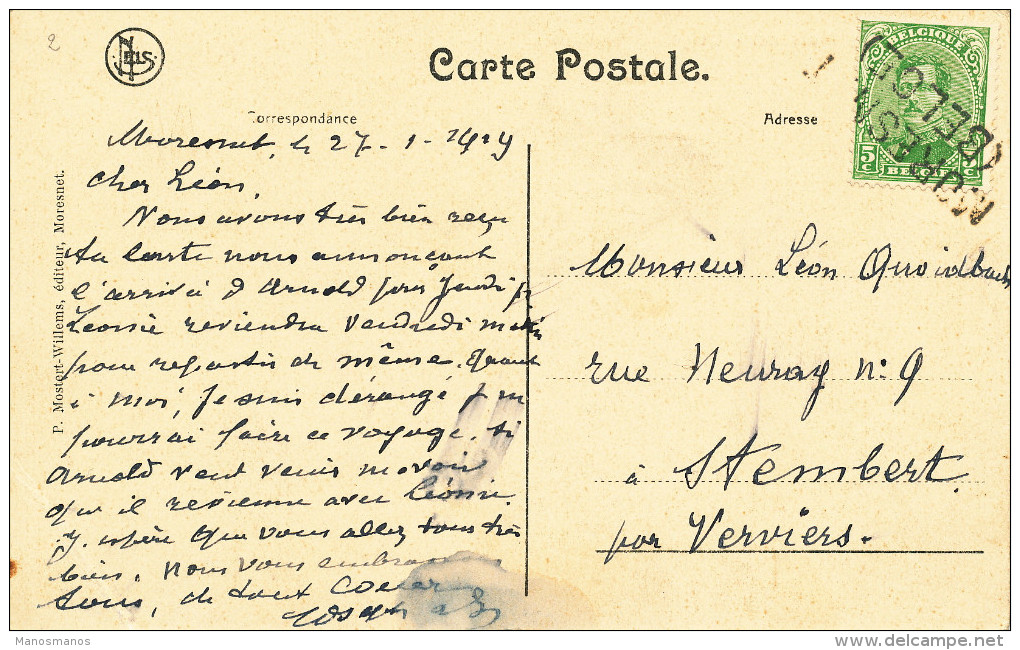 2
NELS
Carte Postale.
Correspondance
Adresse
P. Mostert-Willems, éditeur, Moresnet.
BELGIQUE
5 C
BELGIË
MORESNET
BELGE
Moresnet, le 27-1-1919
Cher Léon,
Nous avons très bien reçu
ta carte nous annonçant
l'arrivée d'Arnold pour Jeudi
Léonie reviendra vendredi matin
pour repartir de même. Quant
à moi, je suis dérangé
pourrai faire ce voyage. Si
Arnold veut venir me voir
qu'il revienne avec Léonie.
J'espère que vous allez tous très
bien. Nous vous embrassons
tous, de tout coeur
Joseph
Monsieur Léon Quoidbach
rue Neuray n: 9
à Stembert
par Verviers.
Manosmanos
delcampe.net